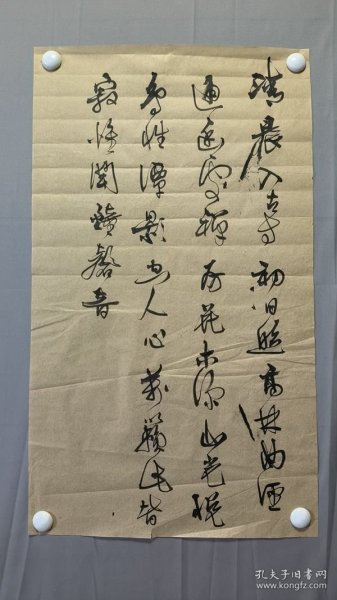 清晨入古寺初日照高林曲徑
通幽處禪房花木深山光悅
鳥性潭影空人心萬籟此皆
寂惟聞鐘磬音
孔夫子旧书网
www.kongfz.com